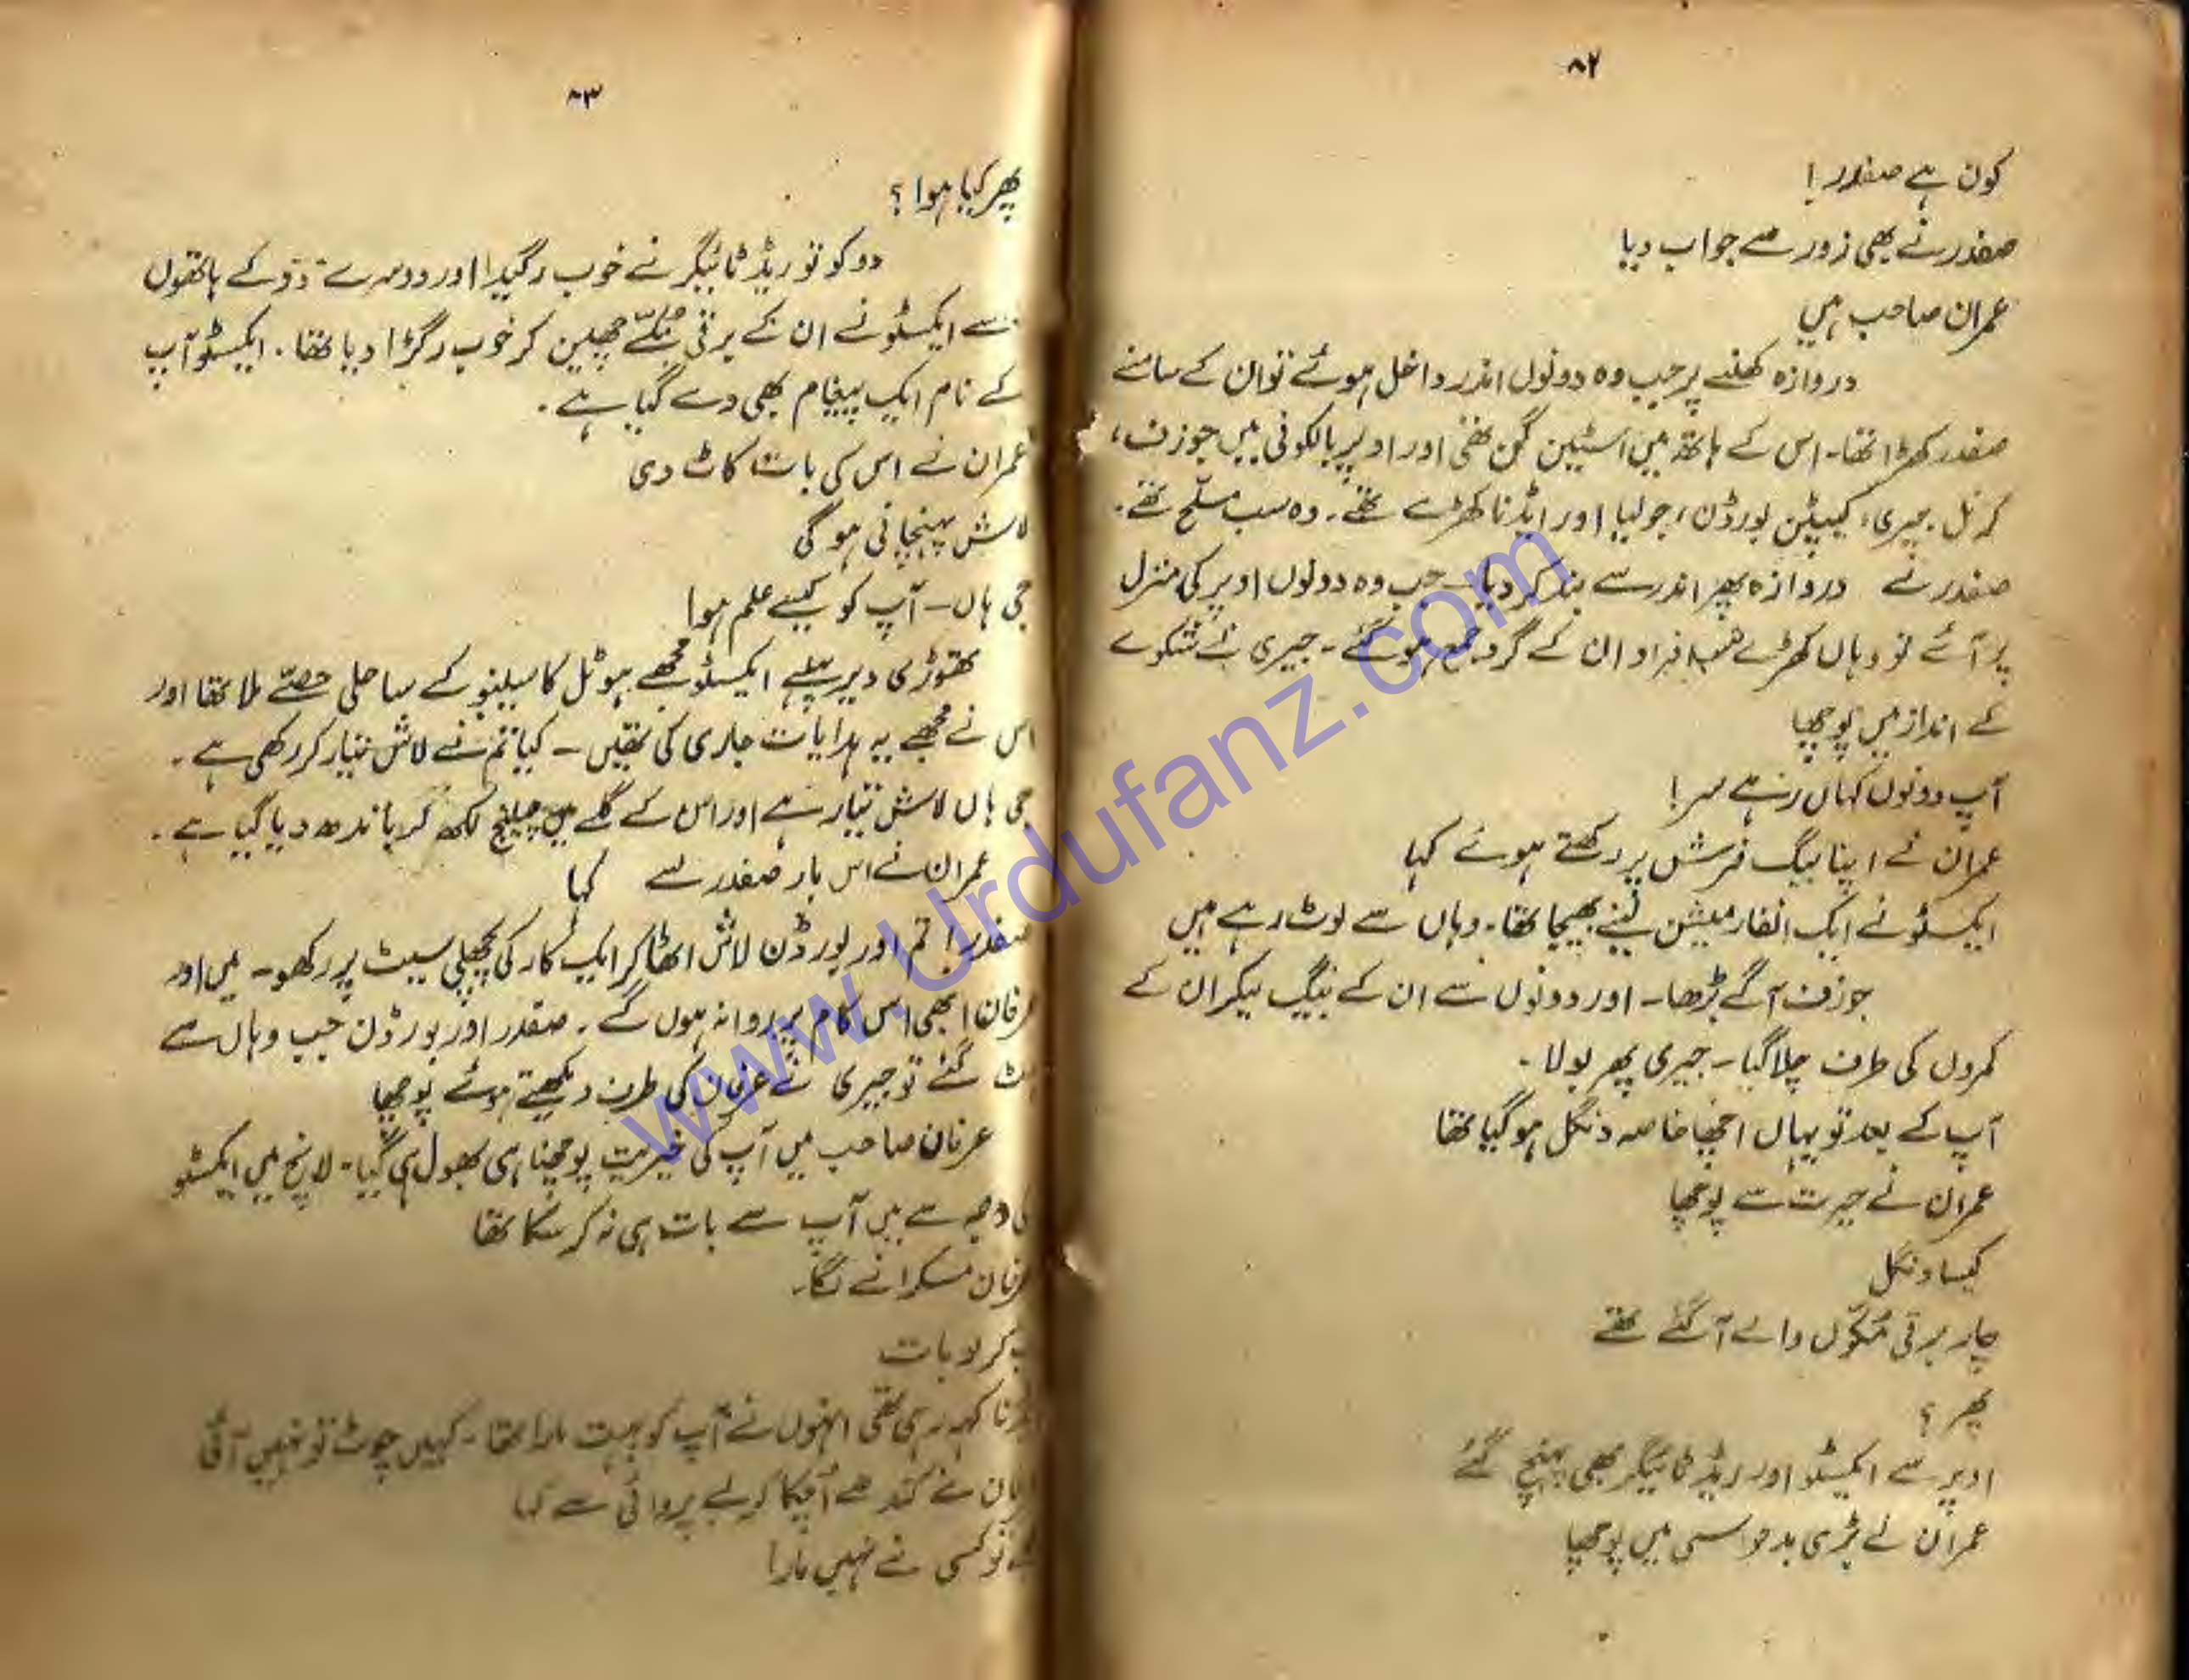 ۸۲
کون ہے صفدر!
صفدر نے بھی زور سے جواب دیا
عمران صاحب ہیں
دروازہ کھلنے پر جب وہ دونوں اندر داخل ہوئے تو ان کے سامنے
صفدر کھڑا تھا۔ اس کے ہاتھ میں اسٹین گن تھی اور اوپر بالکونی میں جوزف،
کرنل جیری، کیپٹن بورڈن، جولیا اور ایڈنا کھڑے تھے۔ وہ سب مسلح تھے۔
صفدر نے دروازہ پھر اندر سے بند کر دیا۔ جب وہ دونوں اوپر کی منزل
پر آئے تو وہاں کھڑے سب افراد ان کے گرد جمع ہو گئے۔ جیری نے شکوے
کے انداز میں پوچھا
آپ دونوں کہاں رہے سر!
عمران نے اپنا بیگ فرش پر رکھتے ہوئے کہا
ایکسٹو نے ایک انفارمیشن لینے بھیجا تھا۔ وہاں سے لوٹ رہے ہیں
جوزف آگے بڑھا۔ اور دونوں سے ان کے بیگ لیکر ان کے
کمروں کی طرف چلا گیا۔ جیری پھر بولا۔
آپ کے بعد تو یہاں اچھا خاصہ دنگل ہو گیا تھا
عمران نے حیرت سے پوچھا
کیسا دنگل
چار برقی مُکّوں والے آ گئے تھے
پھر؟
اوپر سے ایکسٹو اور ریڈ ٹائیگر بھی پہنچ گئے
عمران نے بڑی بدحواسی میں پوچھا
۸۳
پھر کیا ہوا؟
دو کو تو ریڈ ٹائیگر نے خوب رگیدا اور دوسرے دو کے ہاتھوں
سے ایکسٹو نے ان کے برقی مُکّے چھین کر خوب رگڑا دیا تھا۔ ایکسٹو آپ
کے نام ایک پیغام بھی دے گیا ہے۔
عمران نے اس کی بات کاٹ دی
لاش پہنچانی ہو گی
جی ہاں۔ آپ کو کیسے علم ہوا
تھوڑی دیر پہلے ایکسٹو مجھے ہوٹل کاسینو کے ساحلی حصے ملا تھا اور
اس نے مجھے یہ ہدایات جاری کی تھیں۔ کیا تم نے لاش تیار کر رکھی ہے۔
جی ہاں لاش تیار ہے اور اس کے گلے میں چیلنج لکھ کر باندھ دیا گیا ہے۔
عمران نے اس بار صفدر سے کہا
صفدر! تم اور بورڈن لاش اٹھا کر ایک کار کی پچھلی سیٹ پر رکھو۔ میں اور
عرفان ابھی اس کام پر روانہ ہوں گے۔ صفدر اور بورڈن جب وہاں سے
ہٹ گئے تو جیری نے عرفان کی طرف دیکھتے ہوئے پوچھا
عرفان صاحب میں آپ کی خیریت پوچھنا ہی بھول ہی گیا۔ لانچ میں ایکسٹو
کی وجہ سے میں آپ سے بات ہی نہ کر سکا تھا
عرفان مسکرانے لگا۔
کر لو بات
کہہ رہی تھی انہوں نے آپ کو بہت مارا تھا۔ کہیں چوٹ تو نہیں آئی
عرفان نے کندھے اُچکا کر بے پروائی سے کہا
تو کسی نے نہیں مارا
www.Urdufanz.com